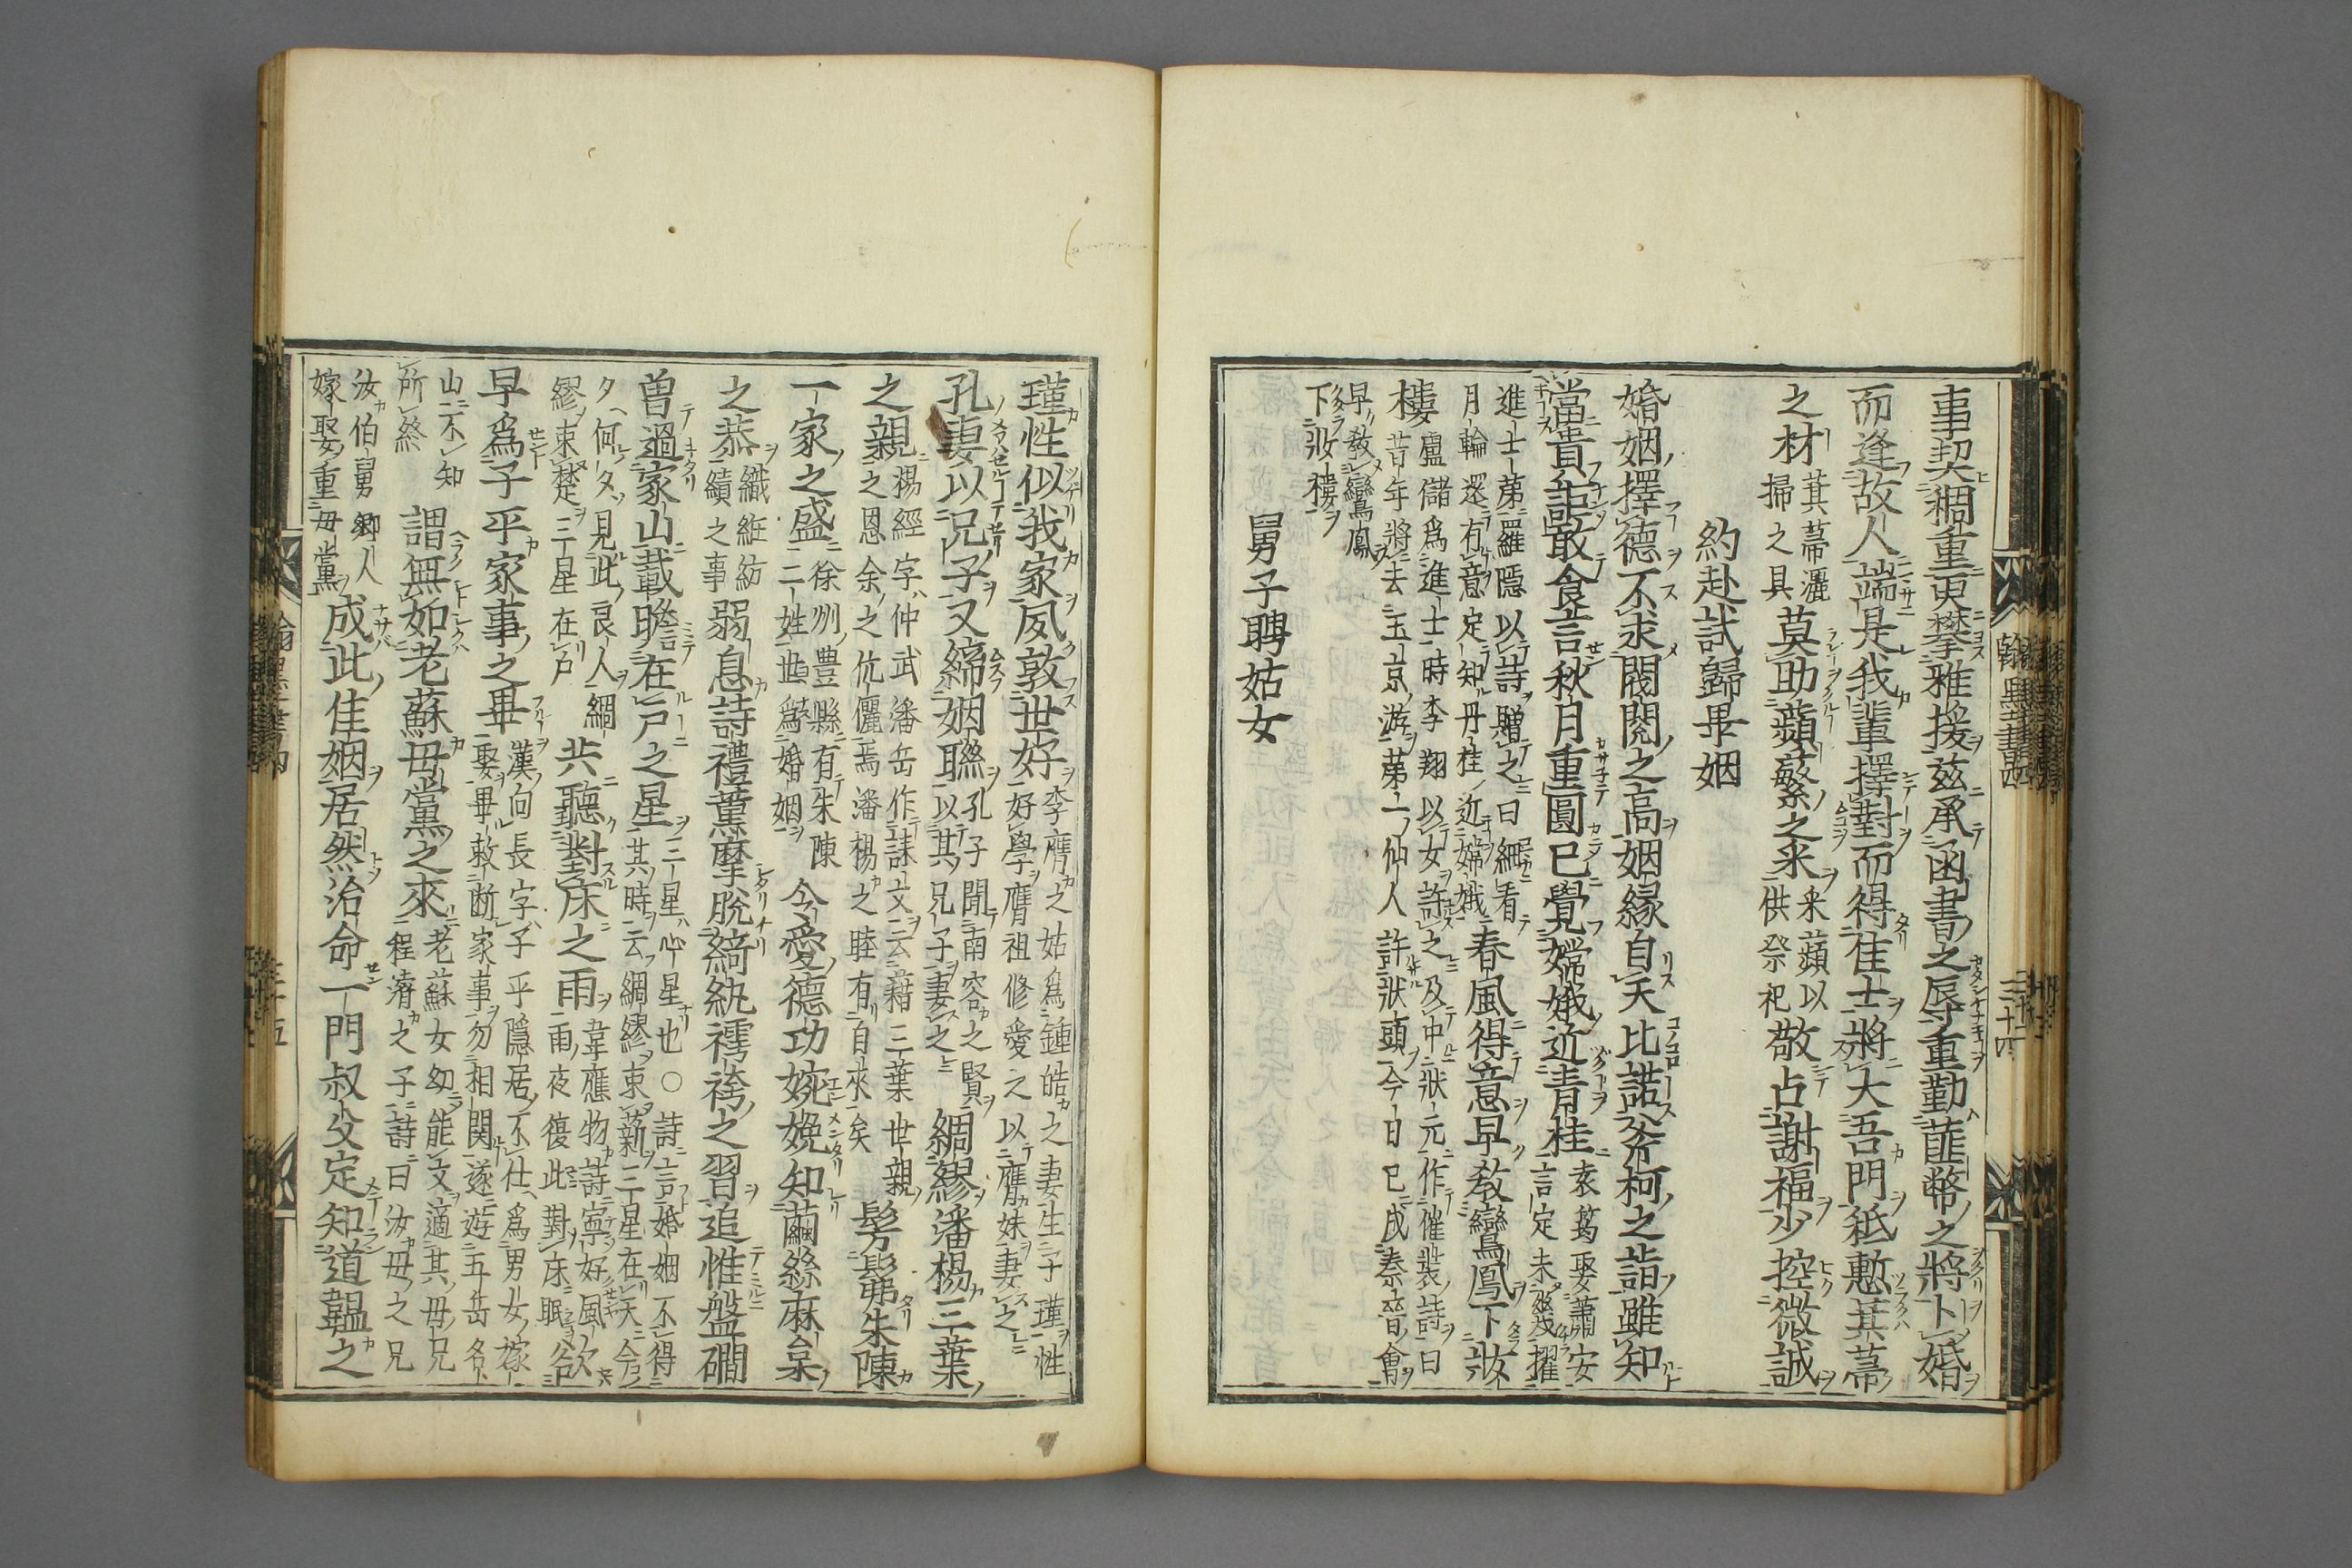 事契稠重更攀雅援茲承函書之辱重勤篚幣之將卜婚
而逢故人端是我輩擇對而得佳士將大吾門秪慙萁菷
之材
萁菷灑
掃之具
莫助蘋蘩之采
采蘋以
供祭祀
敬占謝福少控微誠
約赴試歸畢姻
婚姻擇德不求閥閱之高姻緣自天比諾斧柯之詣雖知
當貴詎敢食言秋月重圓已覺嫦娥近青桂
袁筠娶蕭安
言定未幾擢
進士第羅隱以詩贈之曰細看
月輪還有意定知丹桂近嫦娥
春風得意早教鸞鳳下妝
樓
盧儲爲進士時李翔以女許之及中狀元作催裝詩曰
昔年將去玉京游第一仙人許狀頭今日已成秦晉會
早教鸞鳳
下妝樓
舅子聘姑女
瑾性似我家夙敦世好
李膺之姑爲鍾皓之妻生子瑾性
好學膺祖修愛之以膺妹妻之
孔妻以兄子又締姻聯
孔子聞南容之賢
以其兄子妻之
綢繆潘楊三葉
之親
楊經字仲武潘岳作誄文云藉三葉世親
之恩余之伉儷焉潘楊之睦有自來矣
髣髴朱陳
一家之盛
徐州豐縣有朱陳
二姓世爲婚姻
今愛德功婉娩知繭絲麻枲
之恭
織絍紡
績之事
弱息詩禮薰摩脫綺紈襦袴之習追惟盤磵
曽過家山載瞻在戸之星
三星心星也○詩言婚姻不得
其時云綢繆束薪三星在天今
夕何夕見此良人綢
繆束楚三星在戸
共聽對床之雨
韋應物詩寧好風欲
雨夜復此對床眠谷
早爲子平家事之畢
漢向長字子平隱居不仕爲男女嫁
娶畢敕断家事勿相関遂遊五岳名
山不知
所終
謂無如老蘇母黨之來
老蘇女幼能文適其母兄
程濬之子詩曰汝母之兄
汝伯舅鄉人
嫁娶重母黨
成此佳姻居然治命一門叔父定知道韞之
翰墨書四
三十四
三十五